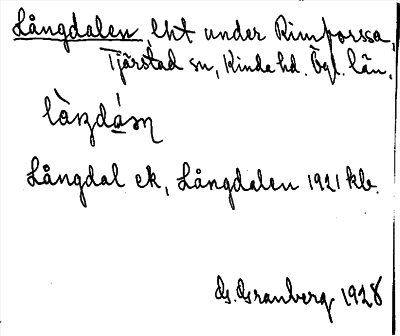 Långdalen, lht under Rimforssa,
Tjärstad sn, Kinda hd. Ögl. län.
làŋdán
Långdal ek, Långdalen 1921 kb.
G. Granberg 1928